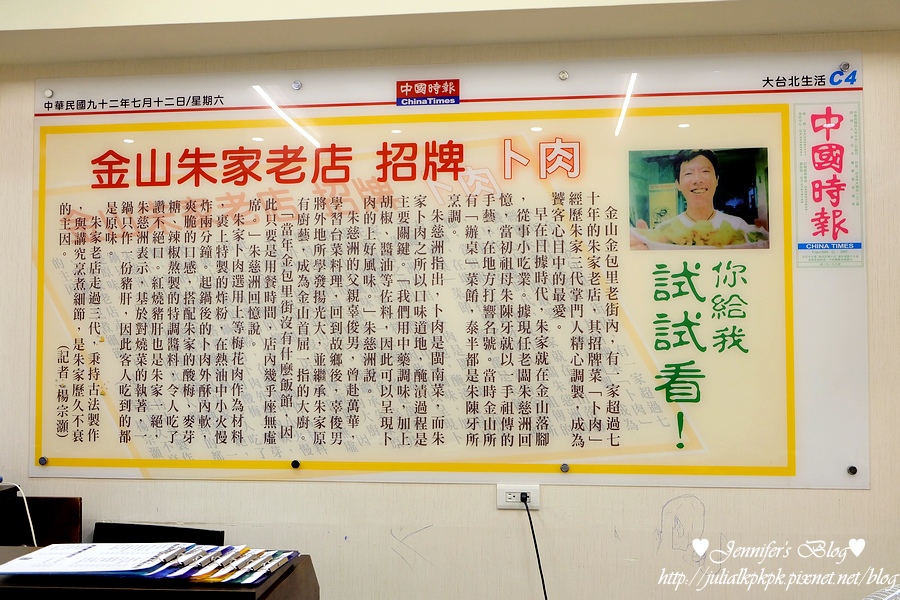 中華民國九十二年七月十二日/星期六
中國時報
ChinaTimes
大台北生活 C4
金山朱家老店 招牌 卜肉
中國時報
CHINA TIMES
你給我
試試看！
金山金包里老街內，有一家超過七
十年的朱家老店，其招牌菜「卜肉」
經歷朱家三代掌門人精心調製，成為
饕客心目中的最愛。
早在日據時代，朱家就在金山落腳
，從事小吃業。據現任老闆朱慈洲回
憶，當初祖母朱陳牙就以一手祖傳的
手藝，在地方打響名號。當時金山所
有「辦桌」菜餚，泰半都是朱陳牙所
烹調。
朱慈洲指出，卜肉是閩南菜，而朱
家卜肉之所以口味道地，醃漬過程是
主要關鍵。「我們用中藥調味，加上
胡椒、醬油等佐料，因此可以呈現卜
肉的上好風味。」朱慈洲說。
朱慈洲的父親辜俊男，曾赴萬華
學習台菜料理，回到故鄉後，辜俊男
將外地所學發揚光大，並繼承朱家原
有廚藝，成為金山首屈一指的大廚。
「當年金包里街沒有什麼飯館，因
此只要是用餐時間，店內幾乎座無虛
席。」朱慈洲回憶說。
朱家卜肉選用上等梅花肉作為材料
，裹上特製的炸粉，在熱油中小火慢
炸兩分鐘，起鍋後的卜肉外酥內軟，
爽脆的口感，搭配朱家的酸梅、麥芽
糖、辣椒熬製的特調醬料，令人吃了
讚不絕口。紅燒豬肝也是朱家一絕，
朱慈洲表示，基於對燒菜的執著，一
鍋只作一份豬肝，因此客人吃到的都
是原味。
朱家老店走過三代，秉持古法製作
，與講究烹煮細節，是朱家歷久不衰
的主因。
（記者 楊宗灝）
Jennifer's Blog
http://julialkpkpk.pixnet.net/blog